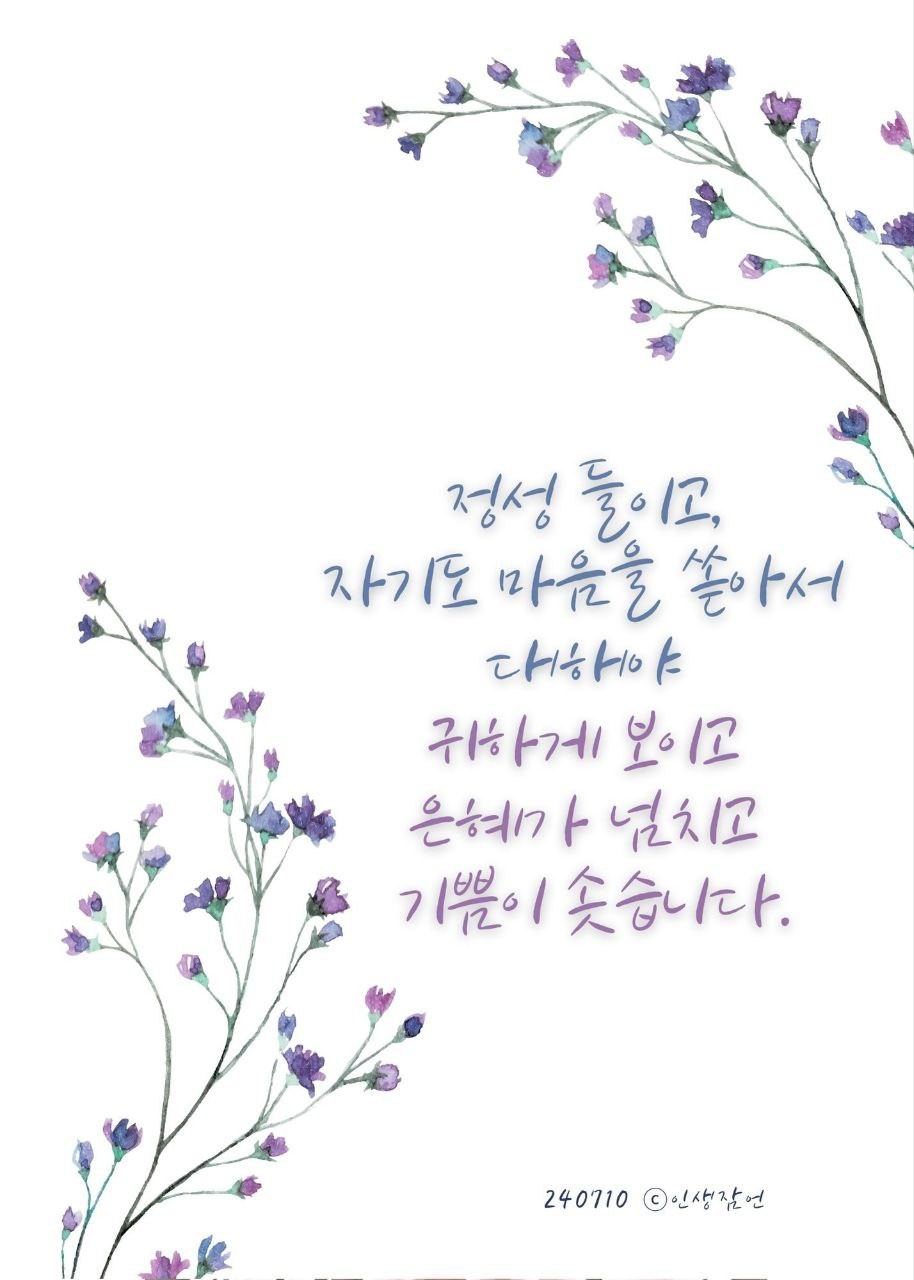 정성 들이고,
자기도 마음을 쏟아서
대해야
귀하게 보이고
은혜가 넘치고
기쁨이 솟습니다.
240710 ⓒ인생잠언